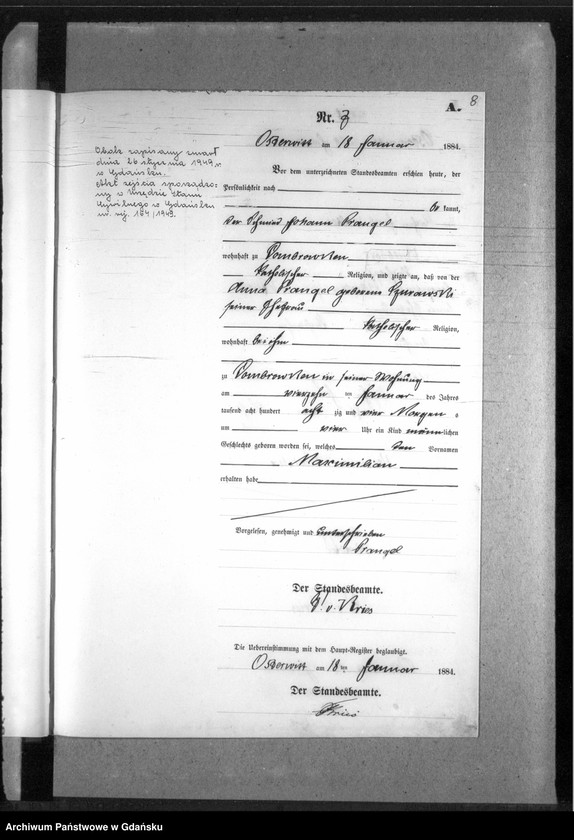 8
A.
Nr. 3
Osterwitt am 18 Januar 1884.
Obok zapisany zmarł
dnia 26 stycznia 1949 r.
w Gdańsku.
Akt zejścia sporządzo-
ny w Urzędzie Stanu
Cywilnego w Gdańsku
nr. 164/1949.
Vor dem unterzeichneten Standesbeamten erschien heute, der
Persönlichkeit nach
be kannt,
der Schmied Johann Prangel
wohnhaft zu Dombrowken
katholischer Religion, und zeigte an, daß von der
Anna Prangel geborene Szurawski
seiner Ehefrau
katholischer Religion,
wohnhaft bei ihm
zu Dombrowken in seiner Wohnung
am vierzehn ten Januar des Jahres
tausend acht hundert acht zig und vier Morgens
um vier Uhr ein Kind männlichen
Geschlechts geboren worden sei, welches den Vornamen
Maximilian
erhalten habe
Vorgelesen, genehmigt und unterschrieben
Prangel
Der Standesbeamte.
v. Kries
Die Uebereinstimmung mit dem Haupt-Register beglaubigt.
Osterwitt am 18ten Januar 1884.
Der Standesbeamte.
Kries
Archiwum Państwowe w Gdańsku